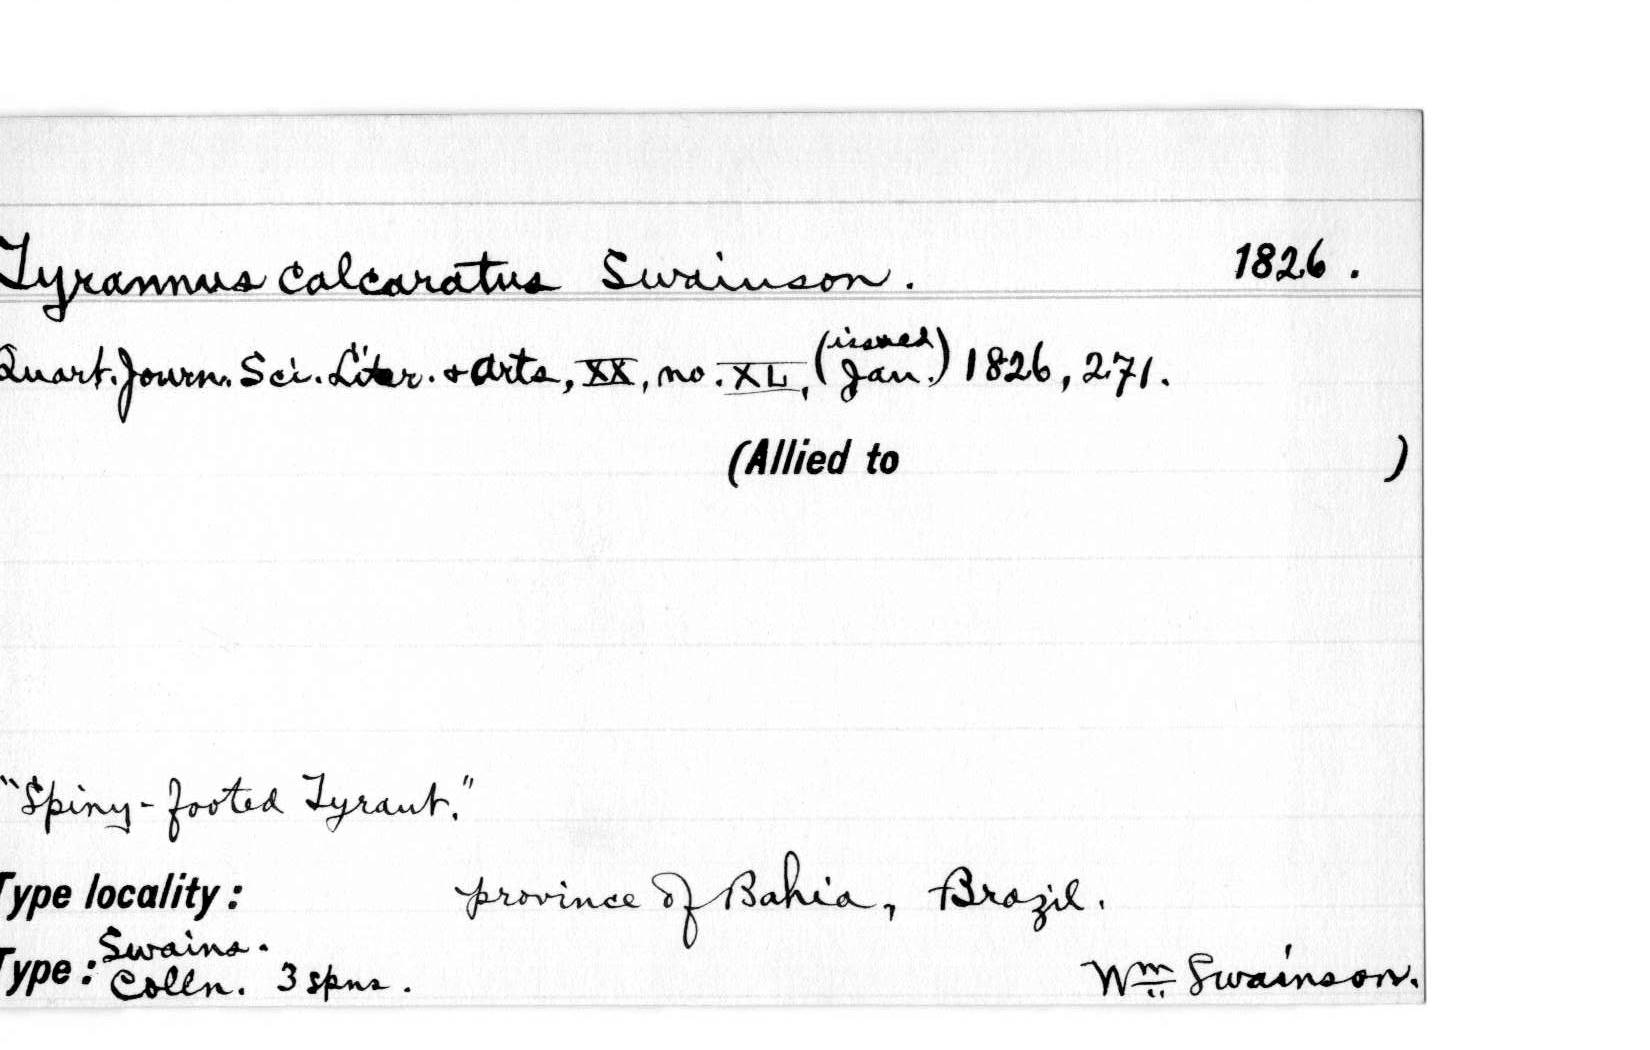 Tyrannus calcaratus Swainson. 1826.
Quart. Journ. Sci. Liter. & Arts, XX, no. XL, (issued Jan.) 1826, 271.
(Allied to )
"Spiny-footed Tyrant."
Type locality: province of Bahia, Brazil.
Type: Swains. Colln. 3 spns. Wm Swainson.